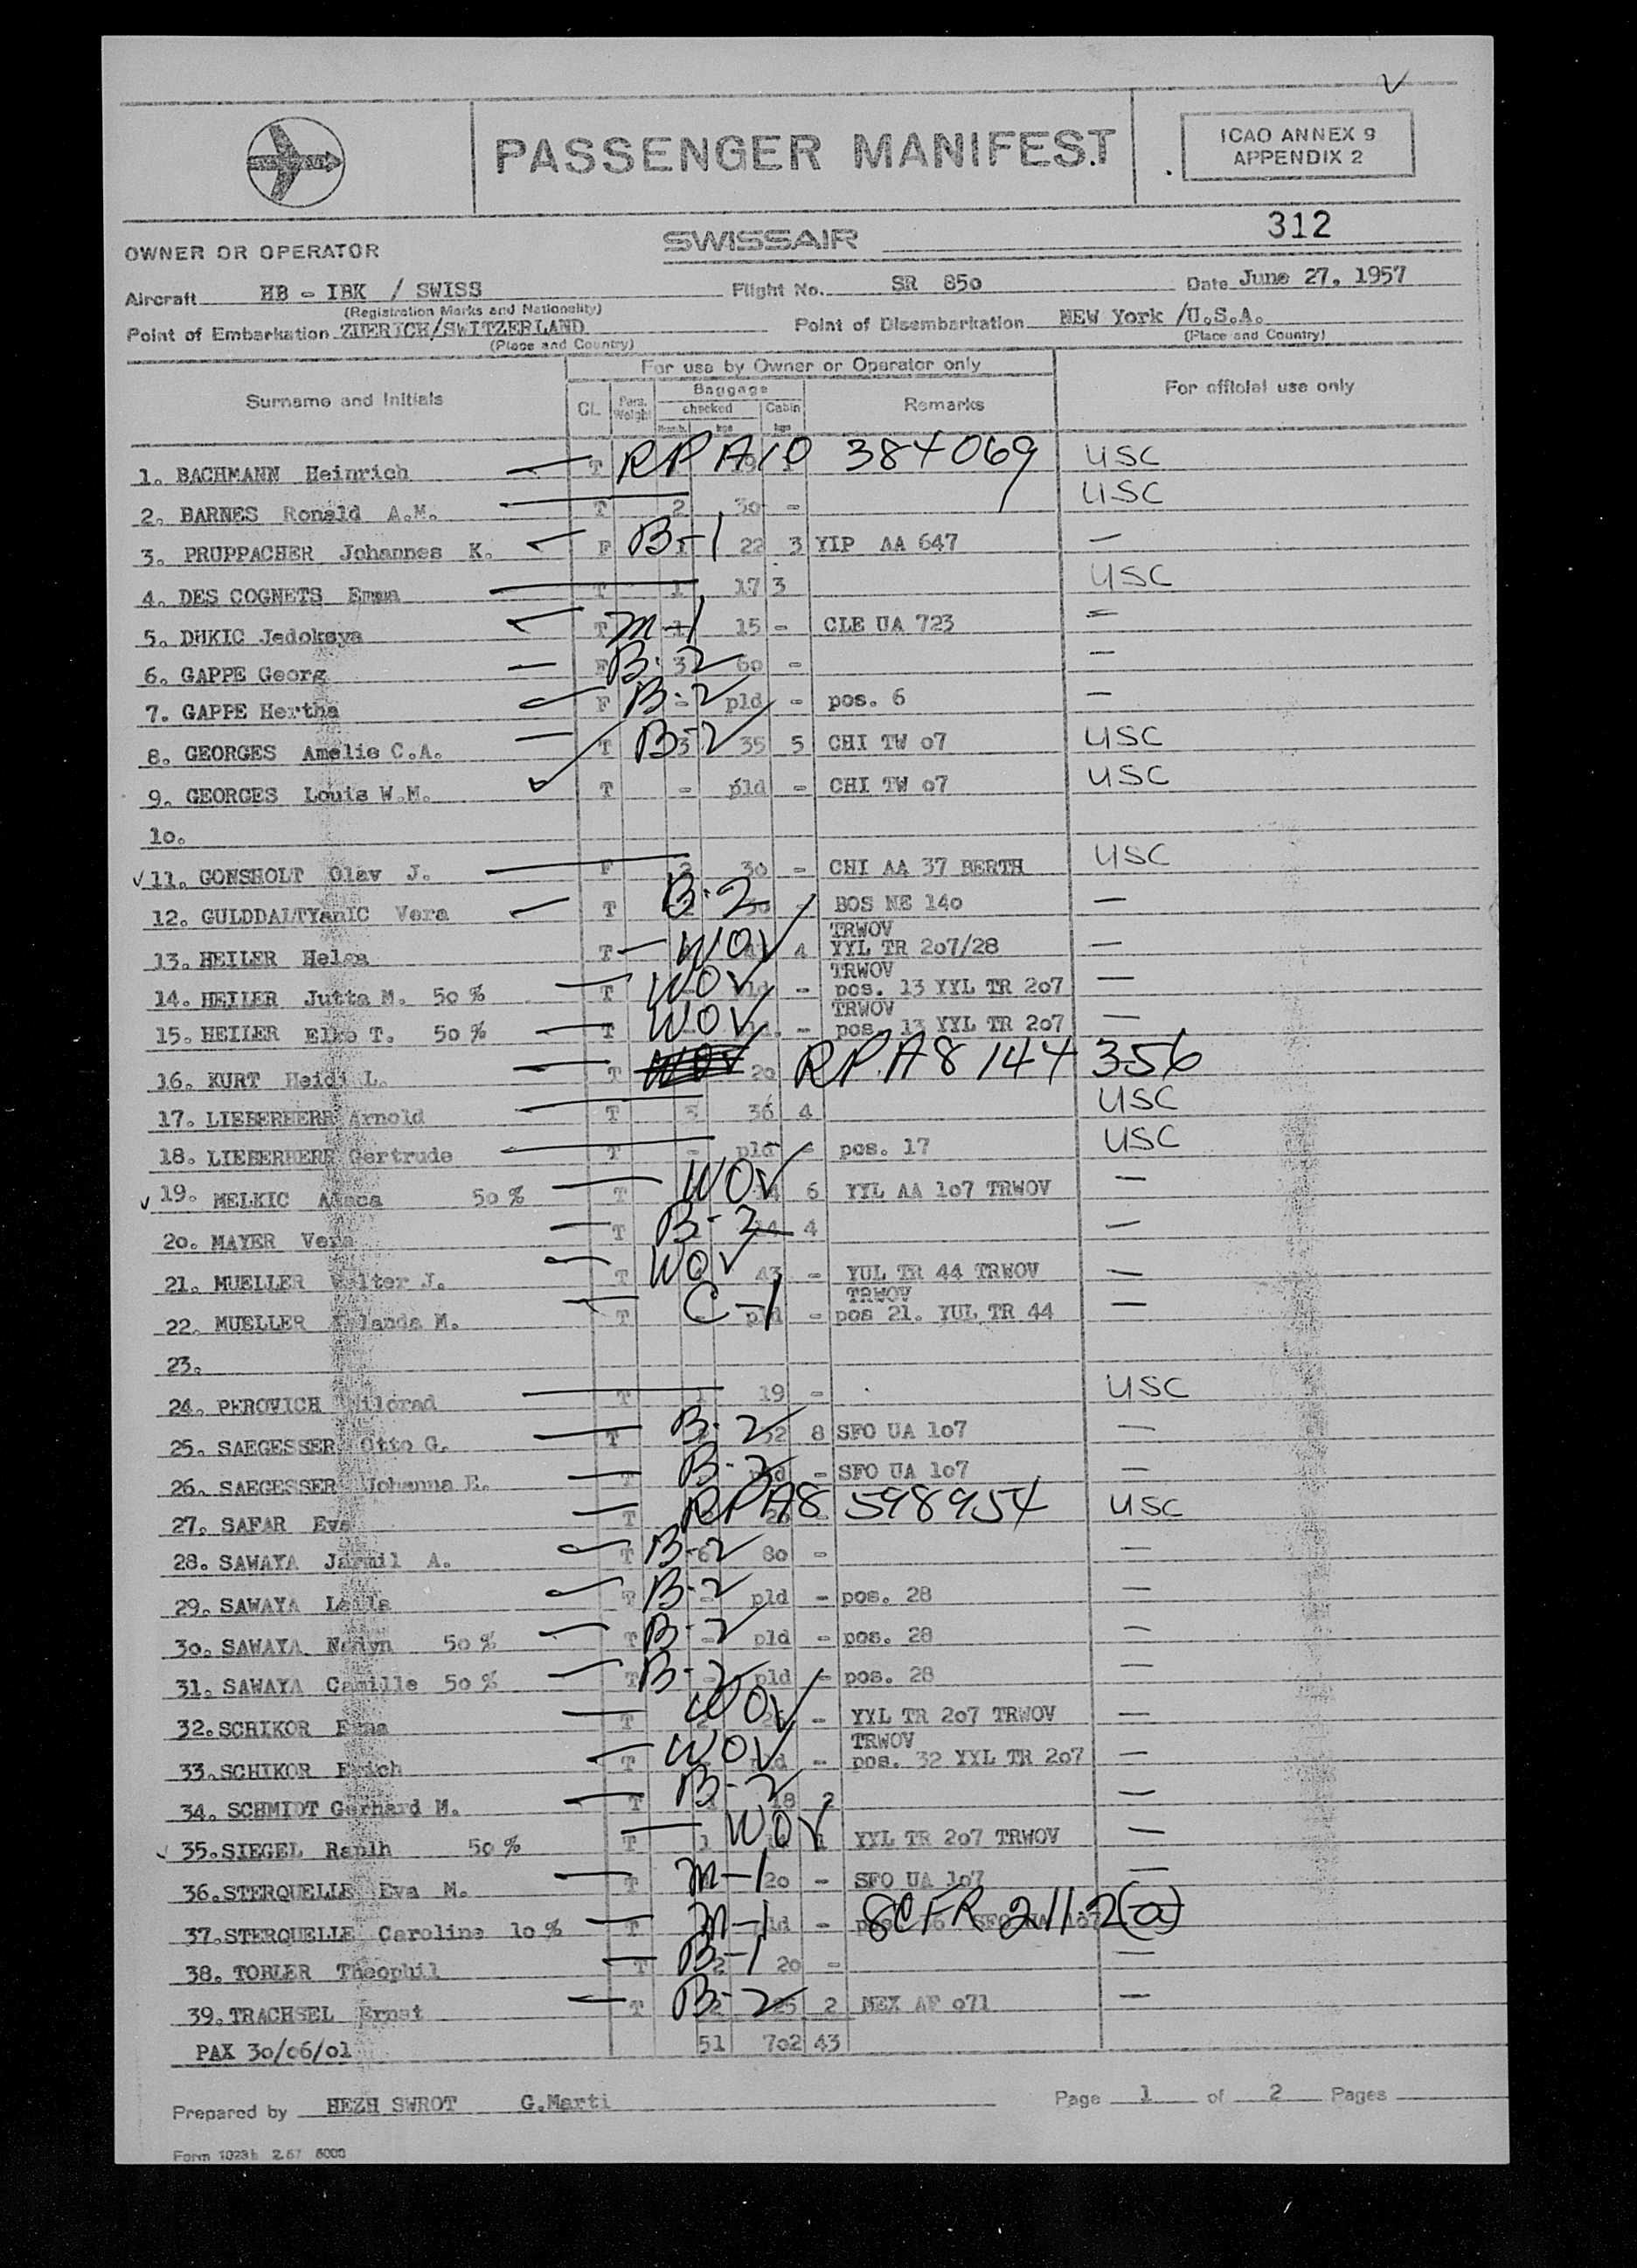 PASSENGER MANIFEST
ICAO ANNEX 9
APPENDIX 2
312
OWNER OR OPERATOR SWISSAIR
Aircraft HB - IBK / SWISS Flight No. SR 85o Date June 27, 1957
(Registration Marks and Nationality)
Point of Embarkation ZUERICH/SWITZERLAND Point of Disembarkation NEW York /U.S.A.
(Place and Country) (Place and Country)
For use by Owner or Operator only
Surname and Initials CL. Pass. Weight Baggage checked Numb. kgs Cabin kgs Remarks For official use only
1. BACHMANN Heinrich T RPA10 384069 USC
2. BARNES Ronald A.M. T 2 3o - USC
3. PRUPPACHER Johannes K. F B-1 22 3 YIP AA 647 —
4. DES COGNETS Emma T 1 17 3 USC
5. DHKIC Jedoksya T M-1 15 - CLE UA 723 —
6. GAPPE Georg F B-2 3 6o - —
7. GAPPE Hertha F B-2 - pld - pos. 6 —
8. GEORGES Amelie C.A. T B-2 3 35 5 CHI TW o7 USC
9. GEORGES Louis W.M. T - pld - CHI TW o7 USC
1o.
11. GONSHOLT Olav J. F 2 3o - CHI AA 37 BERTH USC
12. GULDDALTYanIC Vera T B-2 - BOS NE 14o —
13. HEILER Helga T WOV 4 TRWOV YYL TR 2o7/28 —
14. HEILER Jutta M. 5o % T WOV pld - TRWOV pos. 13 YYL TR 2o7 —
15. HEILER Elke T. 5o % T WOV - TRWOV pos. 13 YYL TR 2o7 —
16. KURT Heidi L. T WOV 2o RPA8 144 356
17. LIEBERHERR Arnold T 3 36 4 USC
18. LIEBERHERR Gertrude T - pld - pos. 17 USC
19. MELKIC 5o % T WOV 6 YYL AA 1o7 TRWOV —
2o. MAYER Vera T B-2 14 4 —
21. MUELLER Walter J. T WOV 43 - YUL TR 44 TRWOV —
22. MUELLER M. T C-1 pld - TRWOV pos 21. YUL TR 44 —
23.
24. PEROVICH Milorad T 1 19 - USC
25. SAEGESSER Otto G. T B-2 32 8 SFO UA 1o7 —
26. SAEGESSER Johanna E. T B-2 pld - SFO UA 1o7 —
27. SAFAR Eva T RPA8 598954 USC
28. SAWAYA Jamil A. T B-2 6 8o - —
29. SAWAYA Leila T B-2 - pld - pos. 28 —
3o. SAWAYA Nadyn 5o % T B-2 - pld - pos. 28 —
31. SAWAYA Camille 5o % T B-2 - pld - pos. 28 —
32. SCHIKOR Erna T WOV 2 - YYL TR 2o7 TRWOV —
33. SCHIKOR Erich T WOV pld - TRWOV pos. 32 YYL TR 2o7 —
34. SCHMIDT Gerhard M. T B-2 18 2 —
35. SIEGEL Raplh 5o % T 1 WOV YYL TR 2o7 TRWOV —
36. STERQUELLE Eva M. T M-1 2o - SFO UA 1o7 —
37. STERQUELLE Caroline 1o % T M-1 pld - 8CFR 211.2(a)
38. TOBLER Theophil T B-1 2 2o - —
39. TRACHSEL Ernst T B-2 2 25 2 MEX AF o71 —
PAX 3o/o6/o1 51 7o2 43
Prepared by HEZH SWROT G.Marti Page 1 of 2 Pages
Form 1023b 2.57 5000